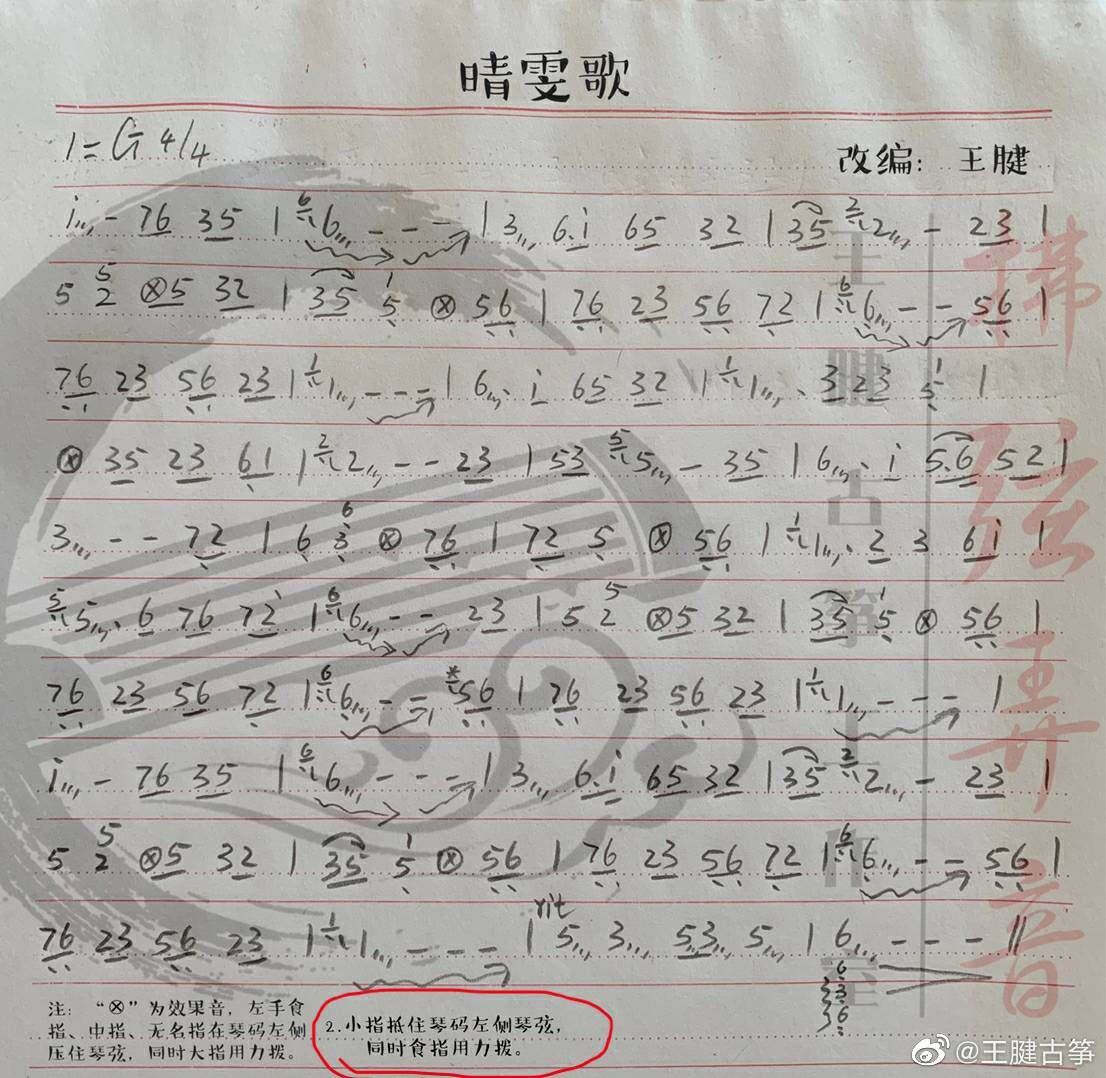 晴雯歌
1=G 4/4
改编: 王腱
i,,, - 76 35 | 6 6,,, - - - | 3,,, 6.i 65 32 | 35 2 2,,, - 23 |
5 5 2 ⊗5 32 | 35 1 5 ⊗ 56 | 76 23 56 72 | 6 6,,, - - 56 |
76 23 56 23 | 1 1,,, - - - | 6,,,. i 65 32 | 1 1,,,. 323 1 5 |
⊗ 35 23 61 | 2 2,,, - - 23 | 53 5 5,,, - 35 | 6,,,. i 5.6 52 |
3,,, - - 72 | 6 6 3 ⊗ 76 | 72 5 ⊗ 56 | 1 1,,,. 2 3 6i |
5 5,,,. 6 76 72 | 6 6,,, - - 23 | 5 5 2 ⊗5 32 | 35 1 5 ⊗ 56 |
76 23 56 72 | 6 6,,, - - 56 | 76 23 56 23 | 1 1,,, - - - |
i,,, - 76 35 | 6 6,,, - - - | 3,,, 6.i 65 32 | 35 2 2,,, - 23 |
5 5 2 ⊗5 32 | 35 1 5 ⊗ 56 | 76 23 56 72 | 6 6,,, - - 56 |
rit
76 23 56 23 | 1 1,,, - - - | 5,,, 3,,, 5,,3,,, 5,,, | 6,,, - - - ||
6
3
6
注: “⊗”为效果音, 左手食
指、中指、无名指在琴码左侧
压住琴弦, 同时大指用力拨。
2.小指抵住琴码左侧琴弦,
同时食指用力拨。
弦
弄
音
@王腱古筝